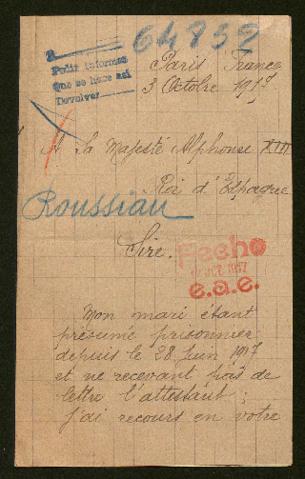 64832
a
Pedir informes
Que se hace así
Devolver
Paris France
3 Octobre 1917
A Sa Majesté Alphonse XIII
Roi d'Espagne
Roussiau
Sire.
Fecho
OCT 1917
e.a.e.
Mon mari étant
présumé prisonnier
depuis le 28 Juin 1917
et ne recevant pas de
lettre l'attestant ;
j'ai recours en votre